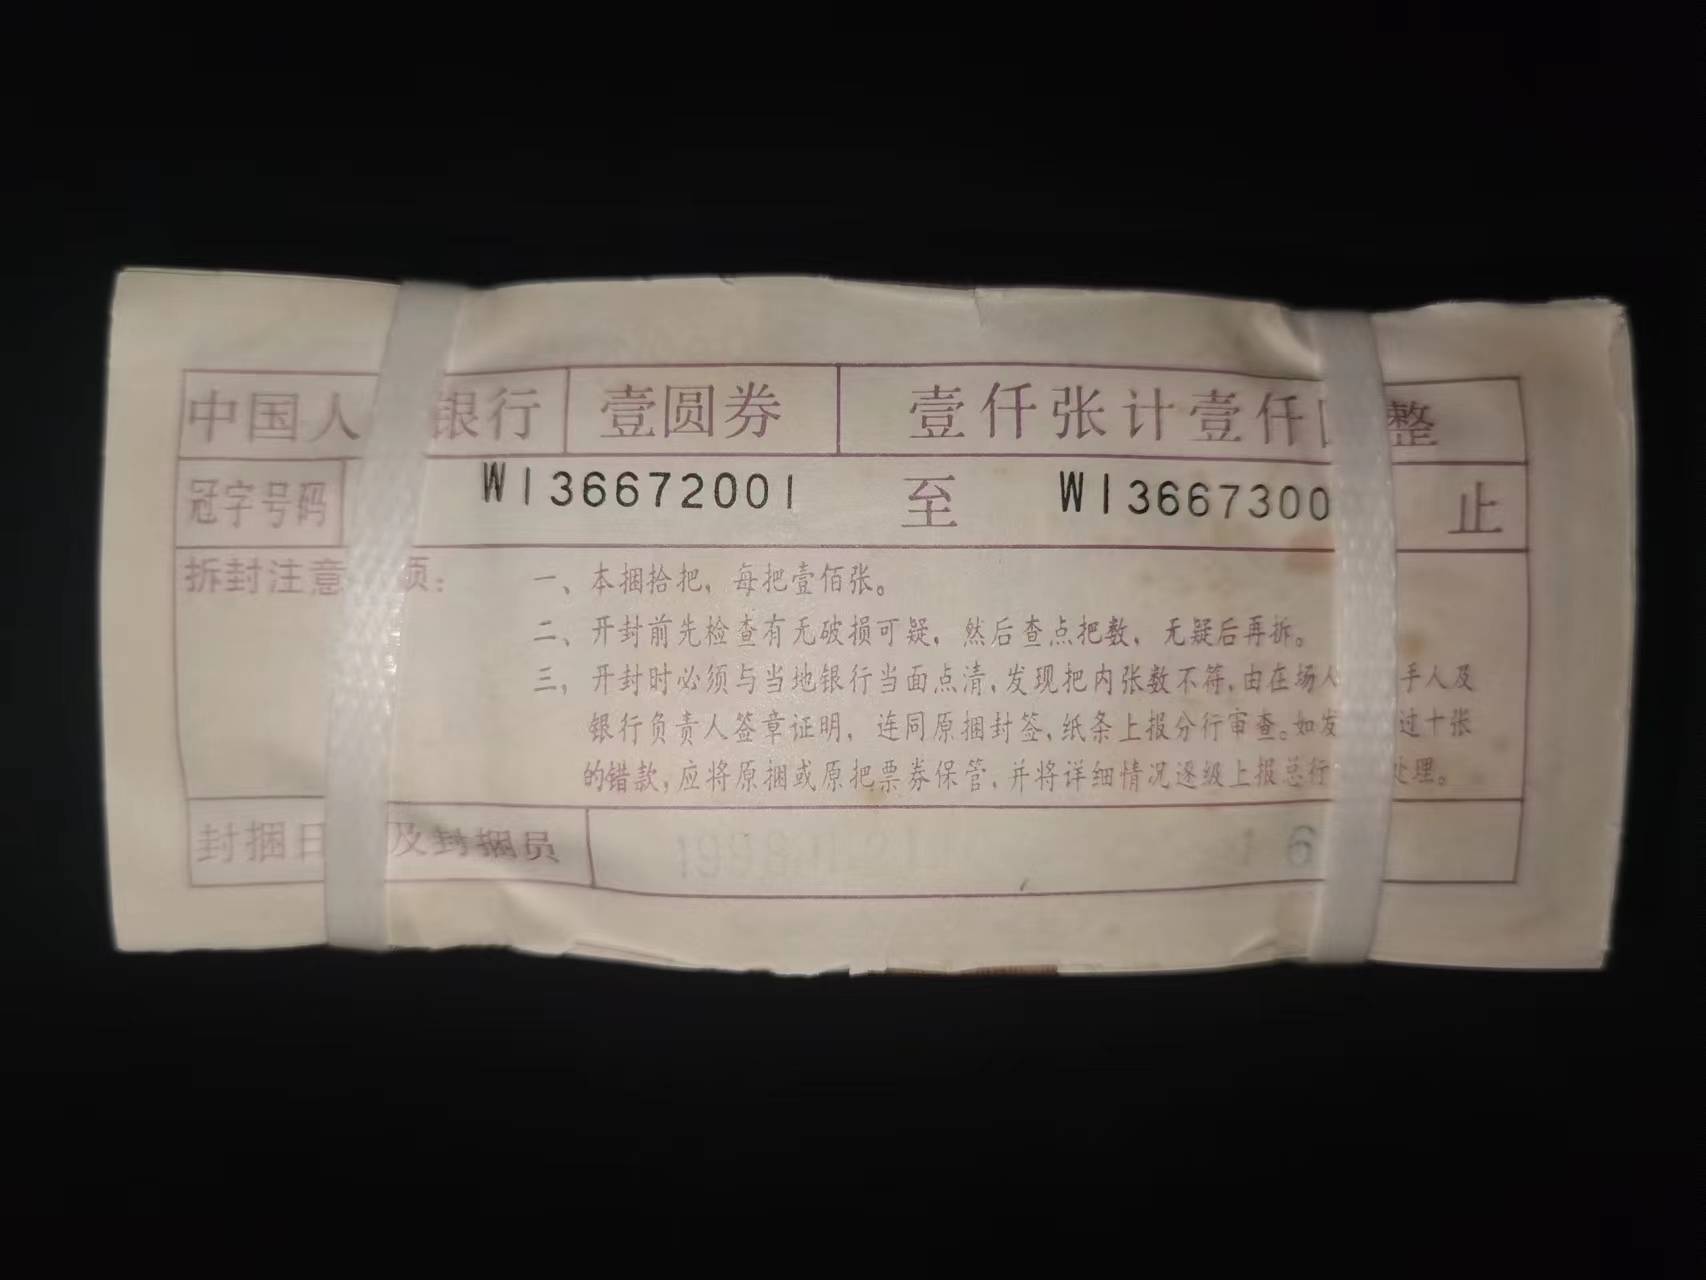 中国人 银行 壹圆券 壹仟张计壹仟 整
冠字号码 W136672001 至 W13667300 止
拆封注意 项: 一、本捆拾把，每把壹佰张。
二、开封前先检查有无破损可疑，然后查点把数，无疑后再拆。
三，开封时必须与当地银行当面点清，发现把内张数不符，由在场人 手人及
银行负责人签章证明，连同原捆封签，纸条上报分行审查。如发 过十张
的错款，应将原捆或原把票券保管，并将详细情况逐级上报总行 处理。
封捆日 及封捆员 6